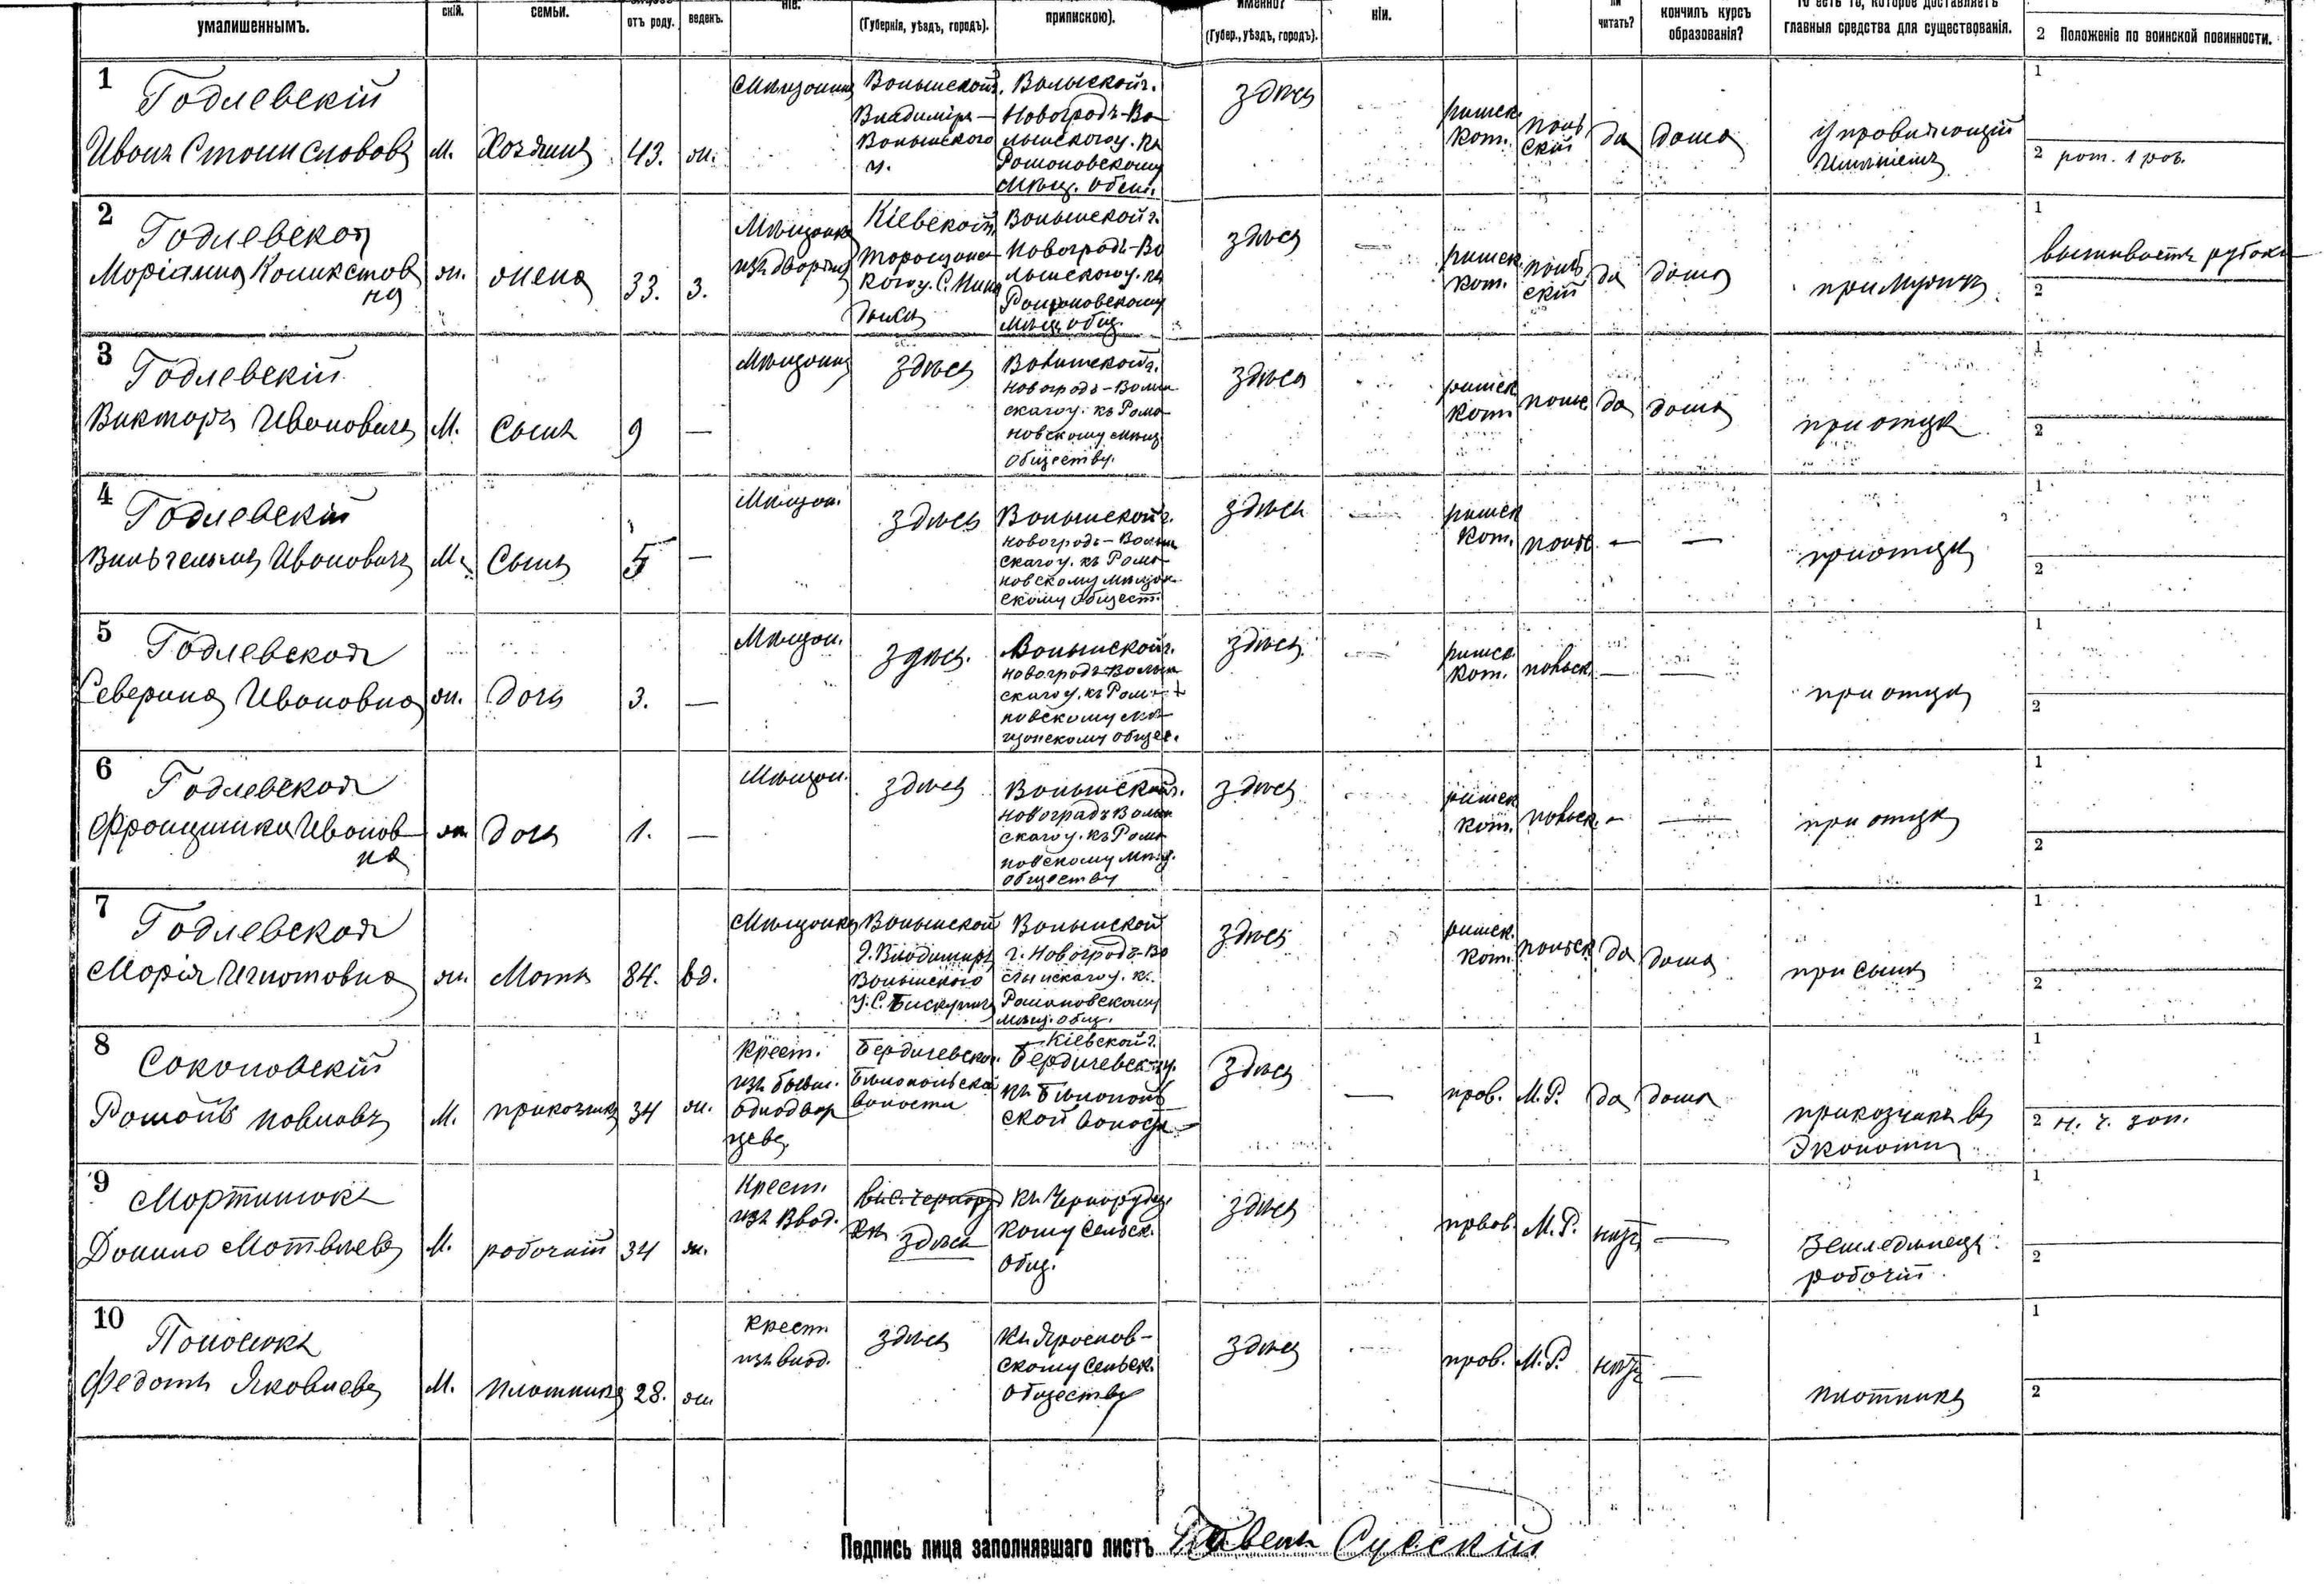 умалишеннымъ.
скій.
семьи.
отъ роду.
веденъ.
ніе.
(Губернія, уѣздъ, городъ).
припискою).
именно?
(Губер., уѣздъ, городъ).
ніи.
ли
читать?
кончилъ курсъ
образованія?
То есть то, которое доставляетъ
главныя средства для существованія.
2 Положеніе по воинской повинности.
1
Годлевскій
Иванъ Станиславовъ
м.
Хозяинъ
43.
ж.
Мѣщанинъ
Волынской г.
Владиміръ-
Волынского
у.
Волынской г.
Новоградъ-Во-
лынского у. къ
Романовскому
Мѣщ. Общ.
здѣсь
римск.
кат.
поль
скій
да
дома
Управляющій
имѣніемъ
1
2 рат. 1 раз.
2
Годлевская
Маріанна Каликстов
на
ж.
жена
33.
з.
Мѣщанка
изъ дворянъ
Кіевской г.
Таращанс
кого у. С.
Волынской г.
Новоградъ-Во
лынского у. къ
Романовскому
Мѣщ. общ.
здѣсь
римск.
кат.
поль
скій
да
дома
при мужѣ
1
вышиваетъ рубахи
2
3
Годлевскій
Викторъ Ивановичъ
М.
Сынъ
9
—
Мѣщанинъ
здѣсь
Волынской г.
Новоградъ-Волын
скаго у. къ Рома
новскому мѣщ.
Обществу.
здѣсь
римск.
кат.
польс.
да
дома
при отцѣ
1
2
4
Годлевскій
Вильгельмъ Ивановичъ
М.
Сынъ
5
—
Мѣщан.
здѣсь
Волынской г.
Новоградъ-Волын
скаго у. къ Рома
новскому мѣщан
скому общест.
здѣсь
римск.
кат.
польс.
—
—
при отцѣ
1
2
5
Годлевская
Северина Ивановна
ж.
Дочь
3.
—
Мѣщан.
здѣсь.
Волынской г.
Новоградъ-Волын
скаго у. къ Рома
новскому мѣ-
щанскому общес.
здѣсь
римск.
кат.
польск.
—
—
при отцѣ
1
2
6
Годлевская
Францишка Иванов
на
ж.
Дочь
1.
—
Мѣщан.
здѣсь
Волынской г.
Новоградъ Волын
скаго у. къ Рома
новскому Мѣщ.
Обществу
здѣсь
римск.
кат.
польск.
—
—
при отцѣ
1
2
7
Годлевская
Марія Игнатовна
ж.
Мать
84.
вд.
Мѣщанка
Волынской
г. Владиміръ
Волынского
у. С. Бискупичи
Волынской
г. Новоградъ-Во
лынскаго у. къ
Романовскому
Мѣщ. общ.
здѣсь
римск.
кат.
польск.
да
дома
при сынѣ
1
2
8
Соколовскій
Романъ Павловъ
М.
прикащикъ
34
ж.
Крест.
изъ бывш.
однодвор
цевъ
Бердичевског.
Бѣлопольской
волости
Кіевской г.
Бердичевск. у.
къ Бѣлополь
ской волости
здѣсь
—
прав.
М.Р.
да
дома
приказчикъ въ
Экономіи
1
2 н. ч. зап.
9
Мартинюкъ
Данило Матвѣевъ
М.
рабочій
34
ж.
Крест.
изъ влад.
здѣсь
къ Чернорудс
кому сельск.
общ.
здѣсь
правов.
М.Р.
нѣтъ
—
Земледѣлецъ.
рабочій.
1
2
10
Федотъ Яковлевъ
М.
плотникъ
28.
ж.
крест.
изъ влад.
здѣсь
къ Яросков-
скому сельск.
обществу
здѣсь
прав.
М.Р.
нѣтъ
—
плотникъ
1
2
Подпись лица заполнявшаго листъ